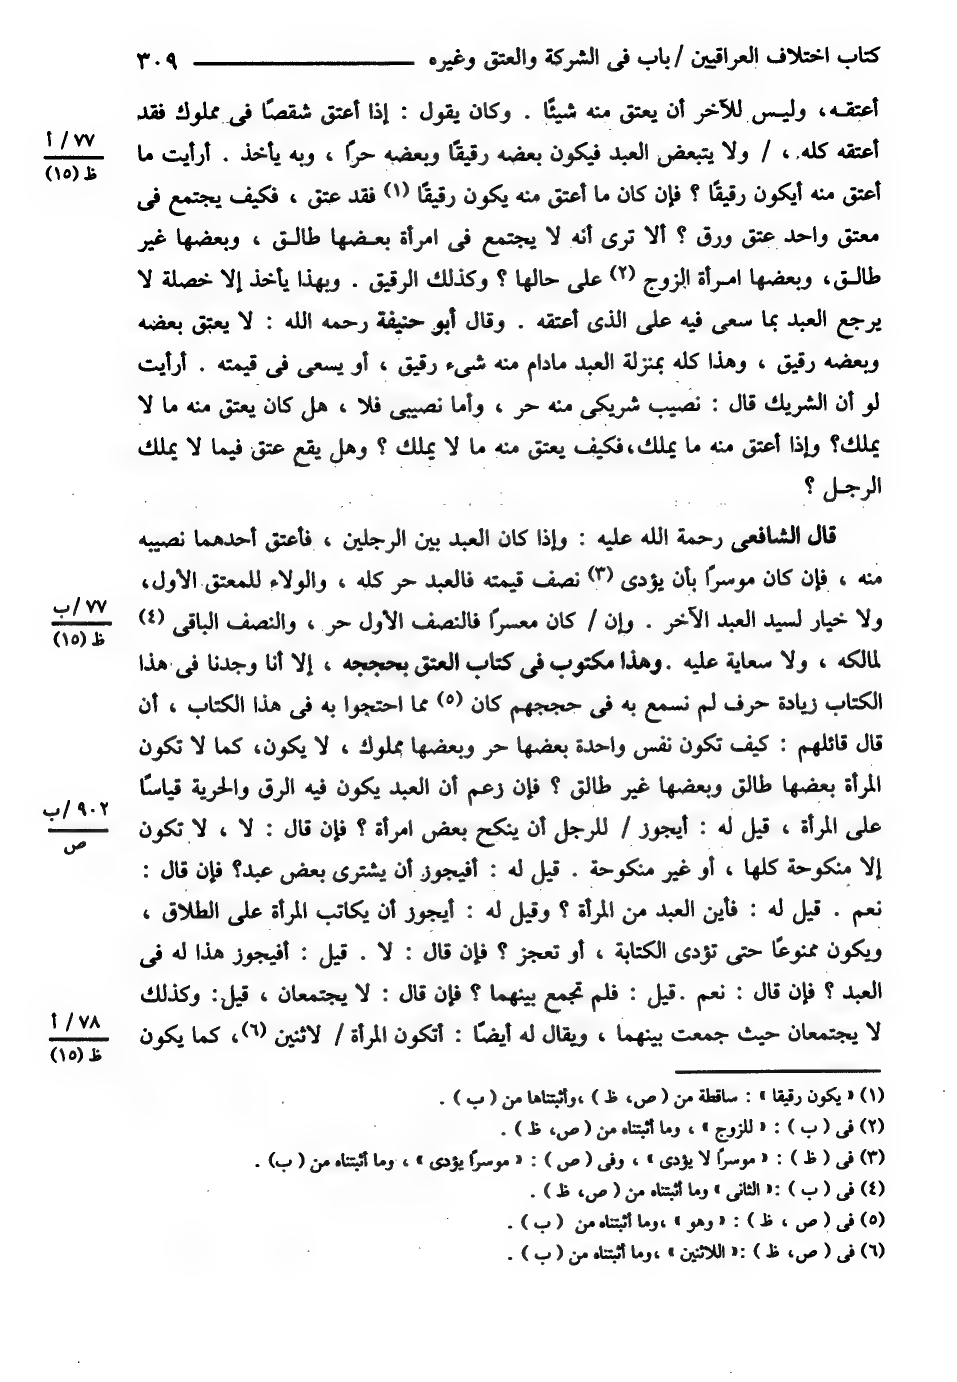 كتاب اختلاف العراقيين / باب فى الشركة والعتق وغيره ٣٠٩
أعتقـه، وليـس للآخر أن يعتق منه شيئًا . وكان يقول : إذا أعتق شقصًا فى مملوك فقد
أعتقه كله ، / ولا يتبعض العبد فيكون بعضه رقيقًا وبعضه حرًا ، وبه يأخذ . أرأيت ما
٧٧ / أ
ظ (١٥)
أعتق منه أيكون رقيقًا ؟ فإن كان ما أعتق منه يكون رقيقًا (١) فقد عتق ، فكيف يجتمع فى
معتق واحد عتق ورق ؟ ألا ترى أنه لا يجتمع فى امرأة بعـضها طالـق ، وبعضها غير
طالـق، وبعضها امـرأة الزوج (٢) على حالها ؟ وكذلك الرقيق . وبهذا يأخذ إلا خصلة لا
يرجع العبد بما سعى فيه على الذى أعتقه . وقال أبو حنيفة رحمه الله : لا يعتق بعضه
وبعضه رقيق ، وهذا كله بمنزلة العبد مادام منه شىء رقيق ، أو يسعى فى قيمته . أرأيت
لو أن الشريك قال : نصيب شريكى منه حر ، وأما نصيبى فلا ، هل كان يعتق منه ما لا
يملك؟ وإذا أعتق منه ما يملك،فكيف يعتق منه ما لا يملك ؟ وهل يقع عتق فيما لا يملك
الرجـل ؟
قال الشافعى رحمة الله عليه : وإذا كان العبد بين الرجلين ، فأعتق أحدهما نصيبه
منه ، فإن كان موسرًا بأن يؤدى (٣) نصف قيمته فالعبد حر كله ، والولاء للمعتق الأول،
ولا خيار لسيد العبد الآخر . وإن / كان معسرًا فالنصف الأول حر ، والنصف الباقى (٤)
٧٧ /ب
ظ (١٥)
لمالكه ، ولا سعاية عليه .وهذا مكتوب فى كتاب العتق بحججه ، إلا أنا وجدنا فى هذا
الكتاب زيادة حرف لم نسمع به فى حججهم كان (٥) مما احتجوا به فى هذا الكتاب ، أن
قال قائلهم : كيف تكون نفس واحدة بعضها حر وبعضها مملوك ، لا يكون، كما لا تكون
المرأة بعضها طالق وبعضها غير طالق ؟ فإن زعـم أن العبد يكون فيه الرق والحرية قياسًا
على المرأة ، قيل له : أيجوز / للرجل أن ينكح بعض امرأة ؟ فإن قال : لا ، لا تكون
٩٠٢ /ب
ص
إلا منكوحة كلها ، أو غير منكوحة . قيل له : أفيجوز أن يشترى بعض عبد؟ فإن قال :
نعم . قيل له : فأين العبد من المرأة ؟ وقيل له : أيجوز أن يكاتب المرأة على الطلاق ،
ويكون ممنوعًا حتى تؤدى الكتابة ، أو تعجز ؟ فإن قال : لا . قيل : أفيجوز هذا له فى
العبد ؟ فإن قال : نعم .قيل : فلم تجمع بينهما ؟ فإن قال : لا يجتمعان ، قيل: وكذلك
لا يجتمعان حيث جمعت بينهما ، ويقال له أيضًا : أتكون المرأة / لاثنين (٦)، كما يكون
٧٨ / أ
ظ (١٥)
(١) « يكون رقيقا » : ساقطة من ( ص، ظ ) ،وأثبتناها من ( ب ) .
(٢) فى ( ب ) : « للزوج » ، وما أثبتناه من ( ص، ظ ) .
(٣) فى ( ظ ) : « موسرًا لا يؤدى » ، وفى ( ص ) : « موسرًا يؤدى » ، وما أثبتناه من ( ب) .
(٤) فى ( ب ) :« الثانى » وما أثبتناه من ( ص، ظ ) .
(٥) فى ( ص ، ظ ) : « وهو » ،وما أثبتناه من ( ب ) .
(٦) فى ( ص، ظ ) :« اللاثنين » ،وما أثبتناه من ( ب ) .